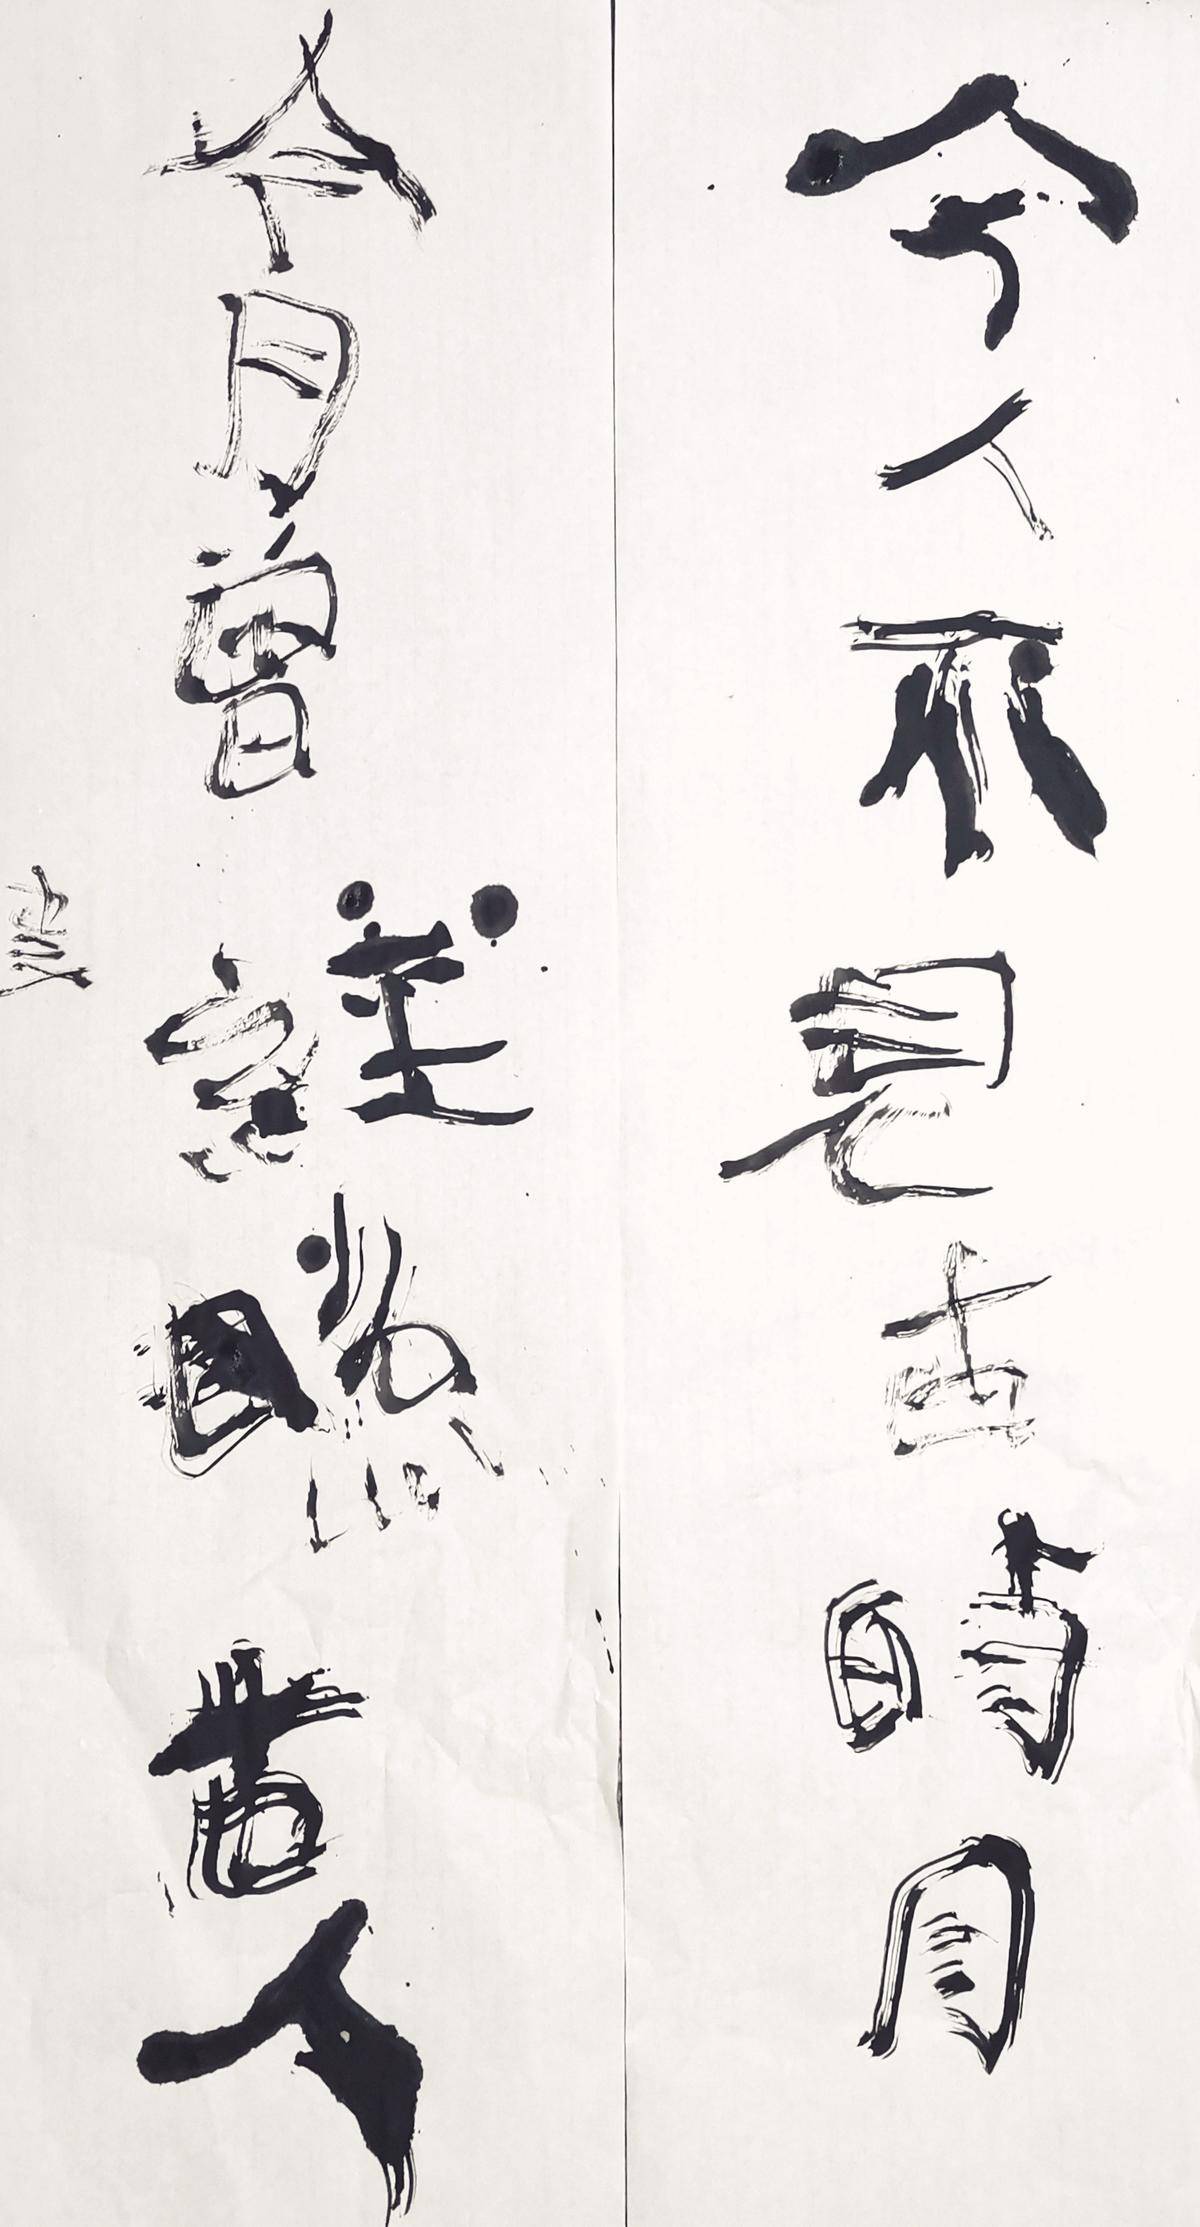 今人不見古時月
今月曾經照古人